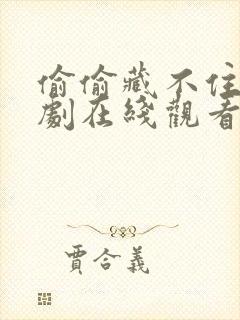 偷偷藏不住
劇在綫觀看
賈合義